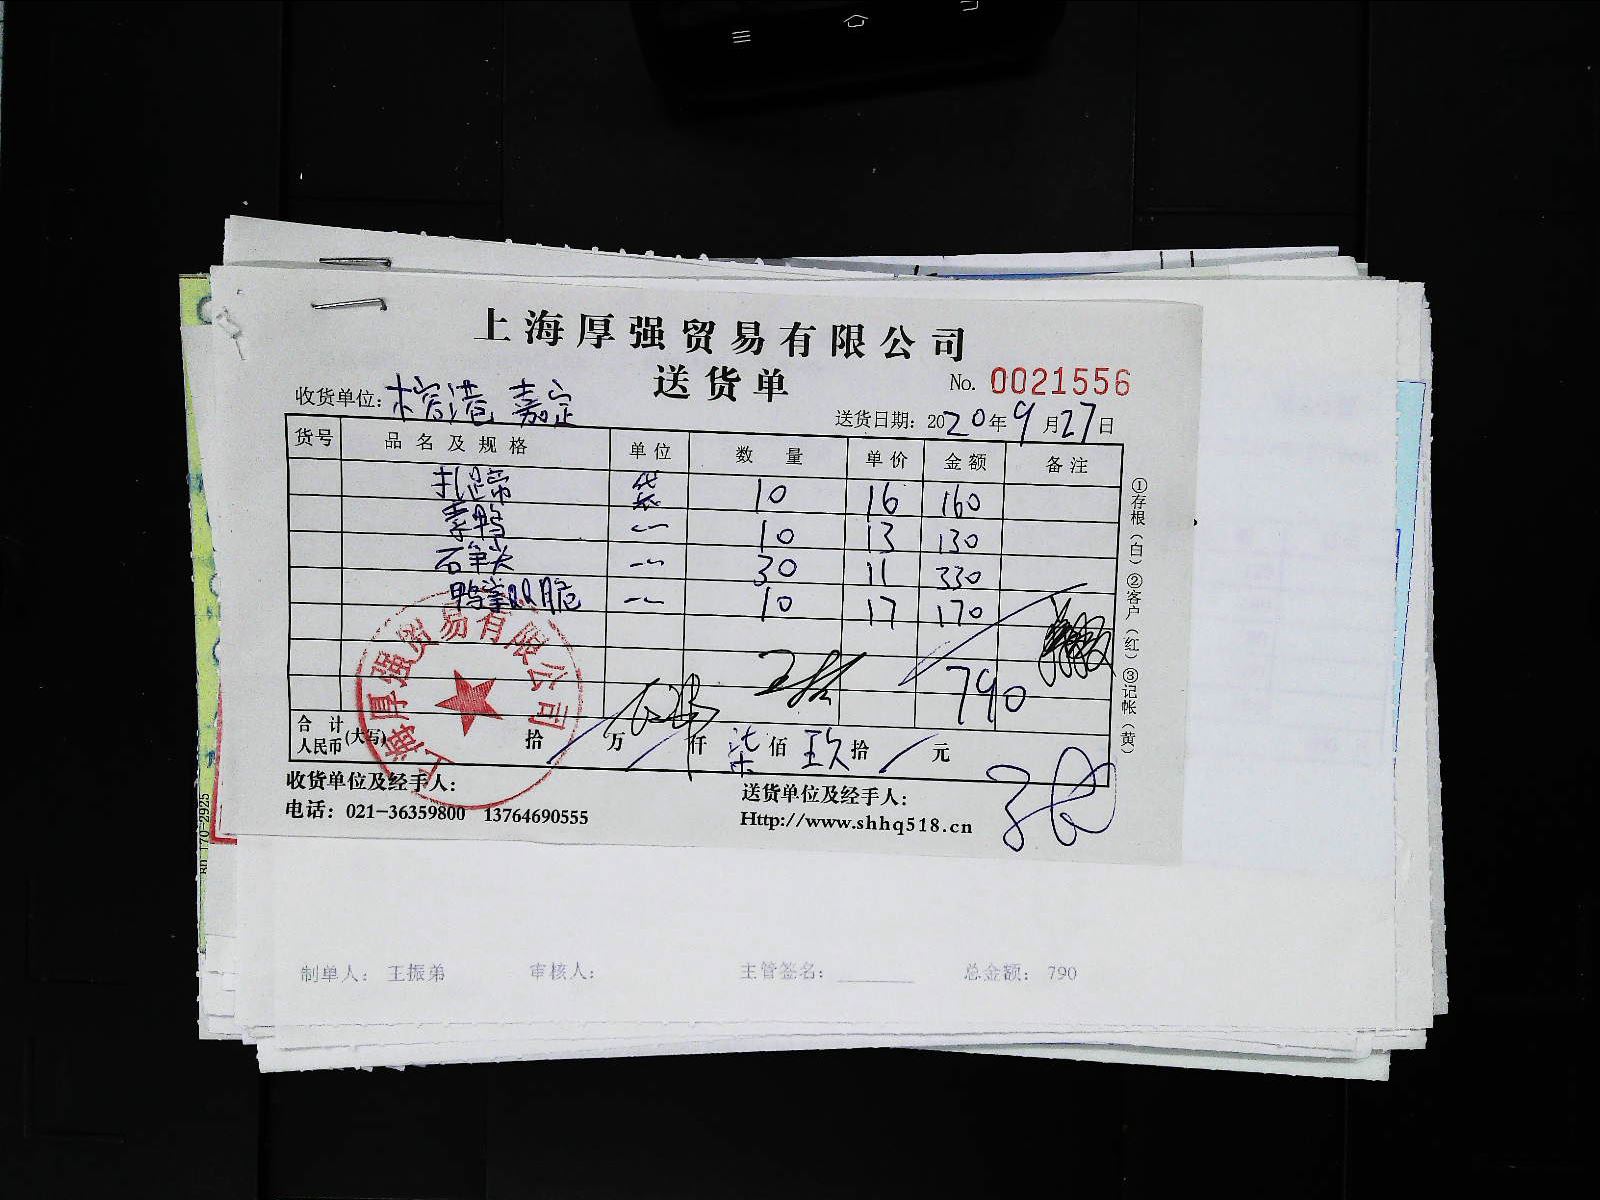 上海厚强贸易有限公司
送货单
No. 0021556
收货单位: 榕港 嘉定
送货日期: 2020年9月27日
货号 品名及规格 单位 数量 单价 金额 备注
扎蹄 袋 10 16 160
素鸭 10 13 130
石笋尖 30 11 330
鸭掌双脆 10 17 170
790
合计人民币(大写) 拾 万 仟 柒 佰 玖 拾 元
收货单位及经手人:
送货单位及经手人:
电话: 021-36359800 13764690555
Http://www.shhq518.cn
①存根(白)②客户(红)③记帐(黄)
上海厚强贸易有限公司
制单人: 王振弟 审核人: 主管签名: 总金额: 790